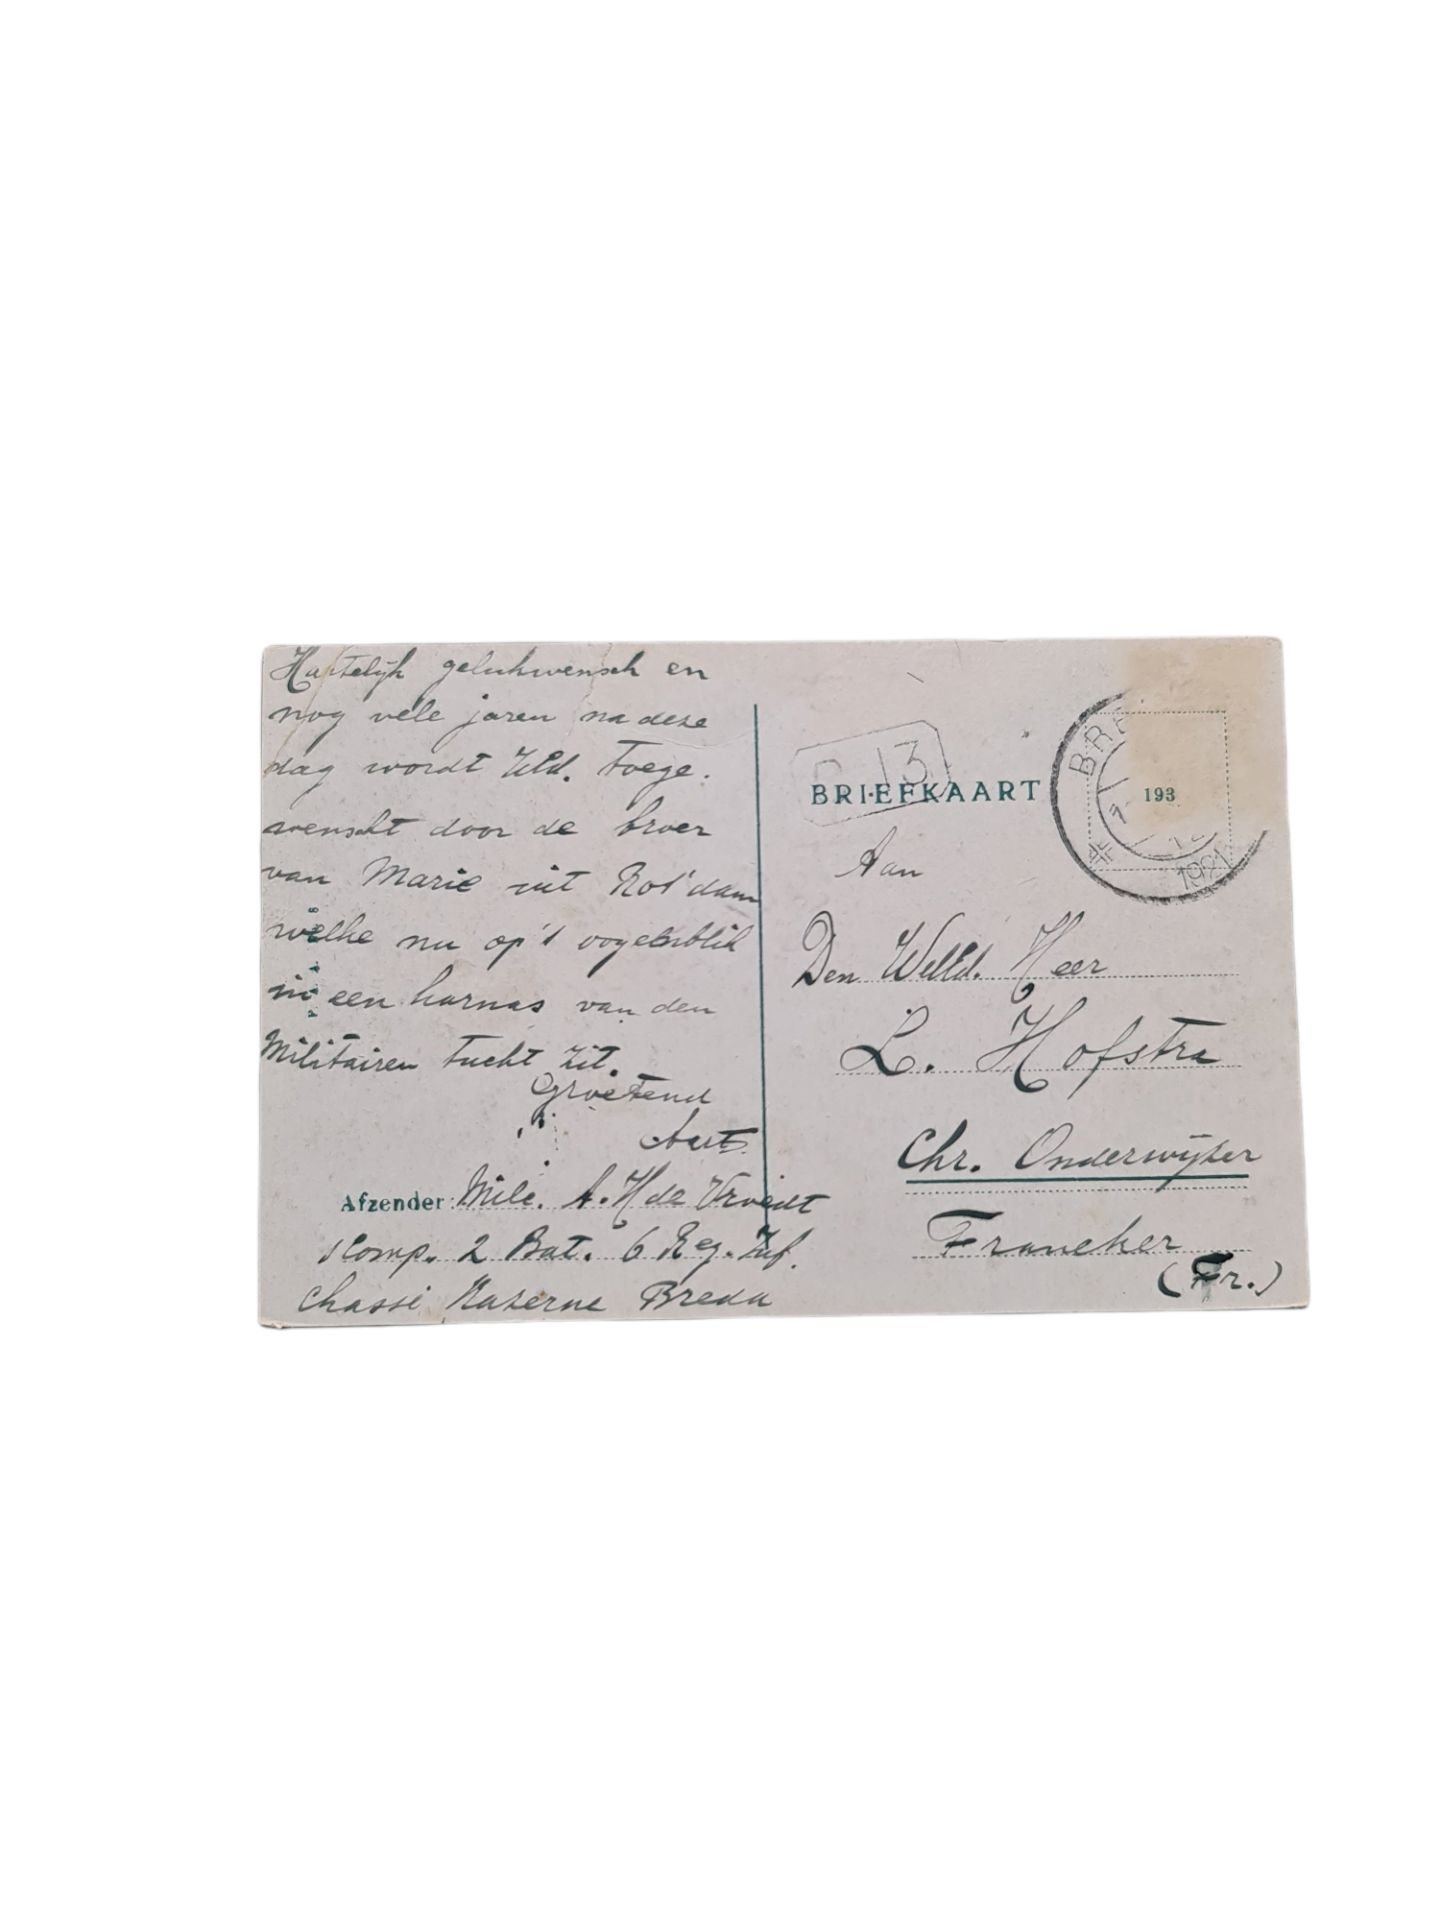 Hartelijk gelukwensch en
nog vele jaren na deze
dag wordt UEd. toege.
wenscht door de broer
van Marie uit Rot'dam
welke nu op't oogenblik
in een harnas van den
Militairen tucht zit.
Groetend
Aart
Afzender Mile. A. H de
1 Comp. 2 Bat. 6 Reg. Inf.
Chassé Kazerne Breda
13
BRIEFKAART
BRE
193
1921
Aan
Den WelEd. Heer
L. Hofstra
Chr. Onderwijzer
Franeker
(Fr.)